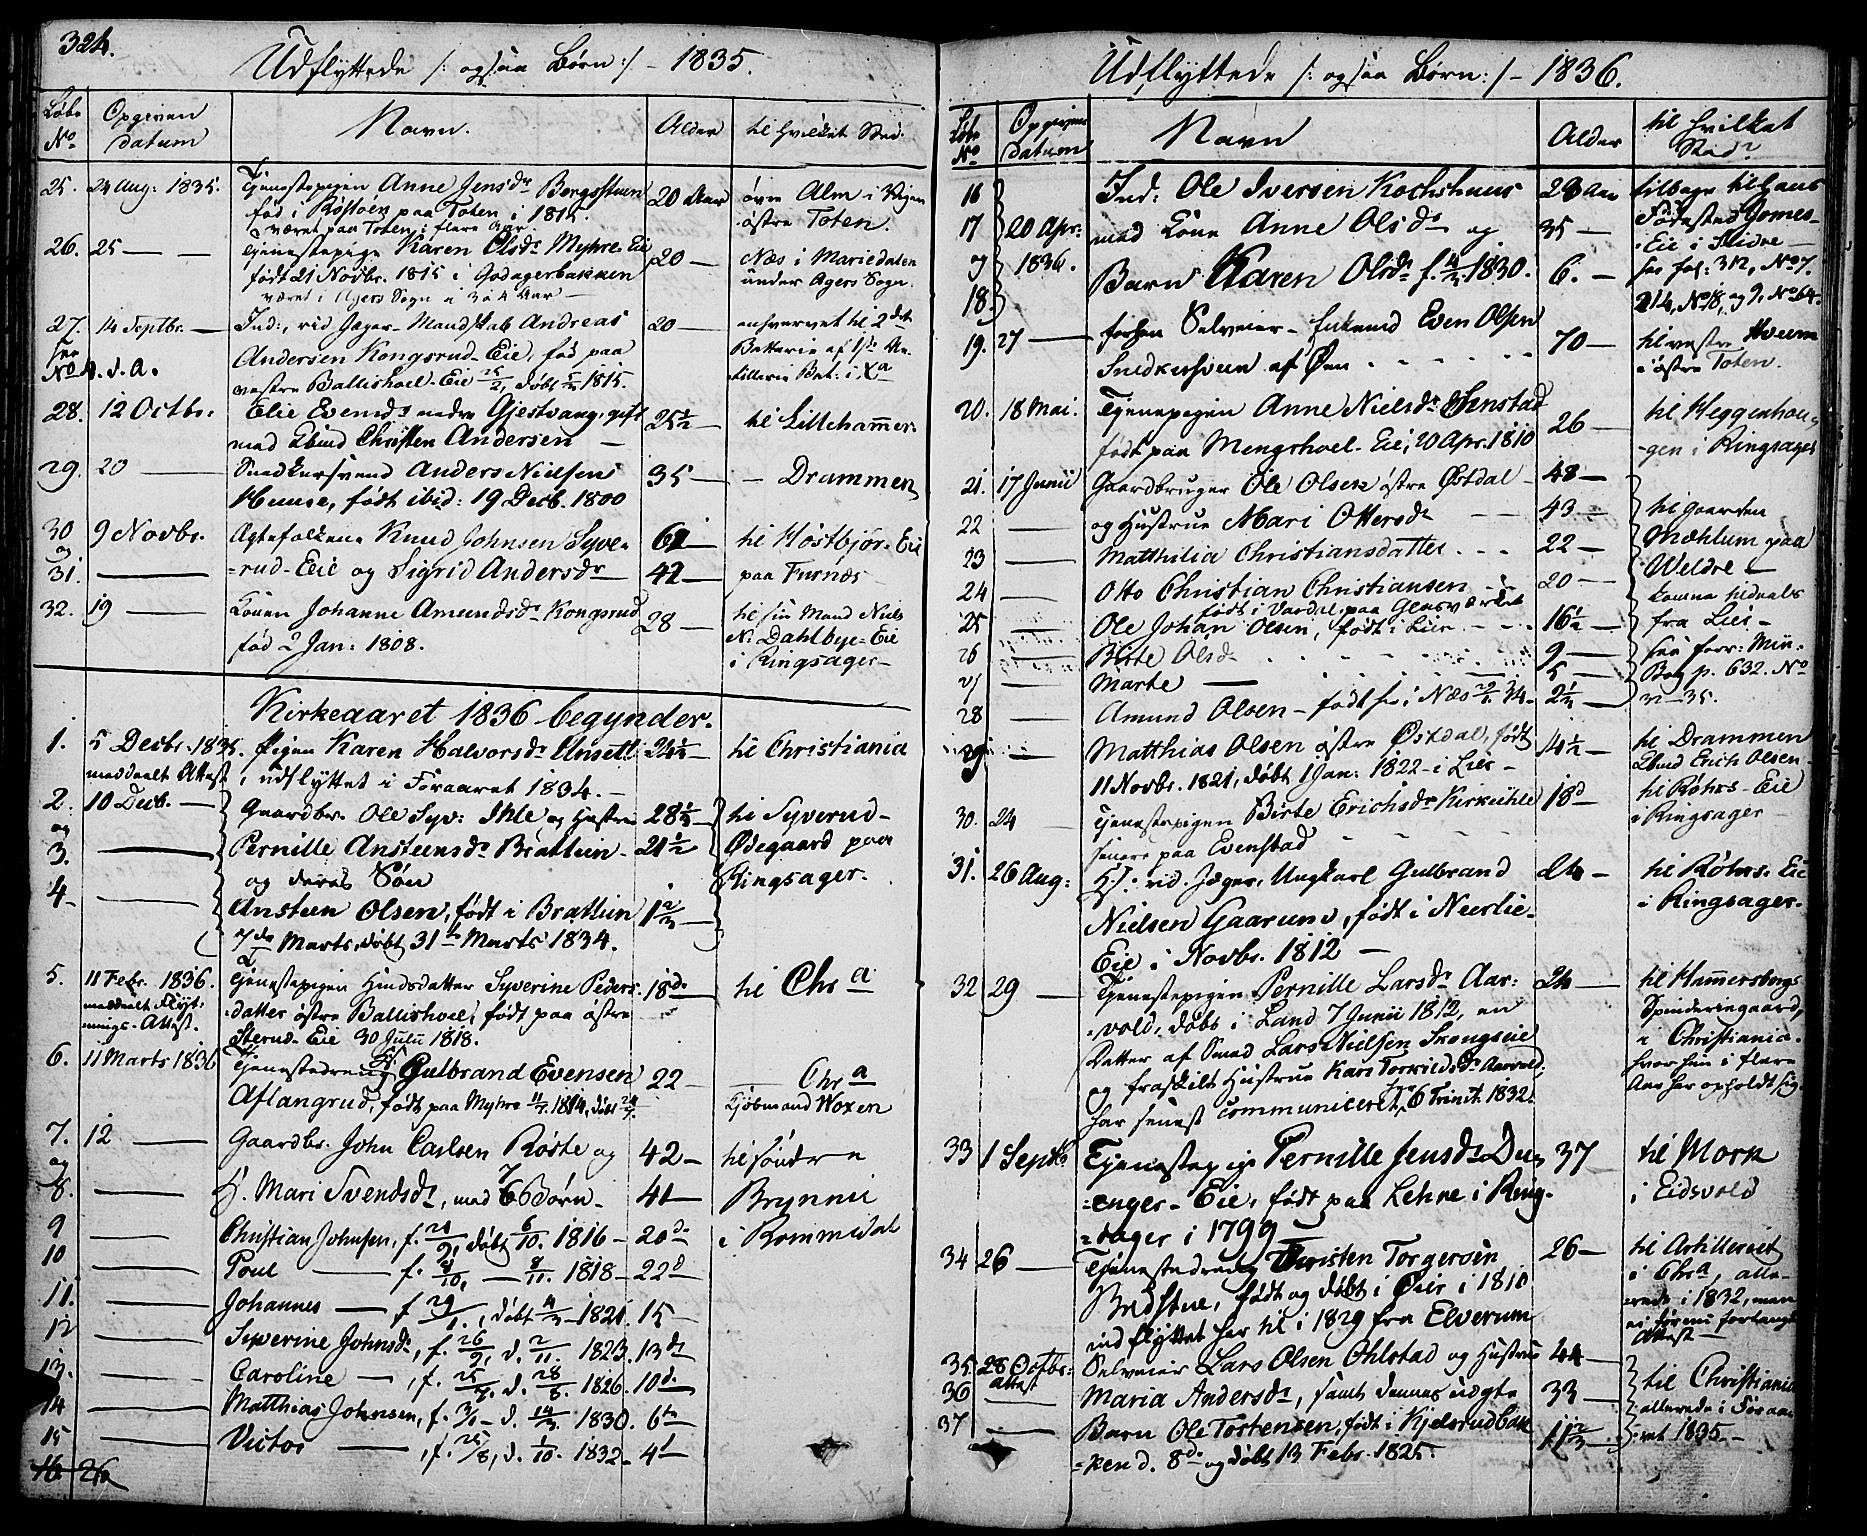 324.
Udflyttede /: ogsaa Børn :/ - 1835.
Løbe No
Opgiven datum
Navn.
Alder
til hvilket Sted.
25. 24 Aug: 1835. Tjenestepigen Anne Jensdr Borgsstuen 20 Aar øvre Alm i Vejen
fød i Røstøen paa Toten i 1815. østre Toten.
været paa Toten i flere Aar.
26. 25 — — Tjenestepige Karen Olsdr Myhre-Eie 20 — Næs i Mariedalen
født 21 Novbr. 1815 i Godagerbakken under Agers Sogn.
været i Agers Sogn i 3 a 4 Aar —
27. 14 Septbr. — Ind:, rid. Jæger-Mandskab Andreas 20 — enhvervet til 2det
see No 4. d. A. Andersen Kongsrud-Eie, fød paa Batterie af
vestre Ballishoel-Eie, døbt 1815.
28. 12 Octbr. Elie Evensdr nedre Gjestvang, gift 25½ — til Lillehamer.
med Christen Andersen —
29. 20 — Snedkersvend Anders Nielsen 35 — — Drammen
Huuse, født ibid: 19 Decb. 1800
30 9 Novbr. Ægtefolkene Knud Johnsen Syve- 61 — til Høstbjør-Eie
og
31. — =rud-Eie og Sigrid Andersdr — 42 — paa Furnæs
32. 19 — Konen Johanne Amundsdr Kongsrud 28 — til sin Mand Niels
fød 2 Jan: 1808. N. Dahlbye-Eie
i Ringsager —
Kirkeaaret 1836 begynder.
1. 5 Decbr. 1835. Pigen Karen Halvorsdr Ansett 24½ — til Christiania
meddeelt Attest, udflyttet i Foraaret 1834. —
2. 10 Decb. — Gaardbr. Ole Syv: Ihle og Hustru 28½ — til Syverud-
og
3. — Pernille Ansteensdr Brattun — 21½ Ødegaard paa
og deres Søn Ringsager.
4 — Ansteen Olsen, født i Brattun 1⅔ —
7de Marts, døbt 31te Marts 1834.
5. 11 Febr. 1836. Tjenestepigen Huusdatter Syverine Peders- 18de til Chra
meddeelt Flyt- =datter østre Ballishoel, født paa østre
nings-Attest. Sterud-Eie 30 Julii 1818.
6. 11 Marts 1836 Tjenestedreng Gulbrand Evensen 22 — — Chra
Aflangrud, født paa Myhre 11/7. 1814, døbt 24/7. Kjøbmand Woxen
7. 12 — Gaardbr. John Carlsen Røste og 42 — til søndre
og
8. — H. Mari Svendsdr, med 7 Børn — 41 — Brynnii
9 — Christian Johnsen, f. 24/9, døbt 6/10. 1816 — 20de i Rommedal
10 — Poul — f. 4/10. — 8/11. 1818 — 22d
11. — Johannes — f 29/1., døbt 4/3 — 1821. 15 —
12 — Syverine Johnsdr, f. 26/9, d. 2/11. 1823. 13de
13. — Caroline —, f. 25/7. d. 28/8. 1826. 10d.
14 — Matthias Johnsen, f. 3/1 — d. 14/3. 1830. 6te
15 — Victor —, f. 25/8, d. 1/10. 1832 — 4d
16 26
Udflyttede /: ogsaa Børn :/ - 1836.
Løbe No
Opgiven datum
Navn
Alder
til hvilket Sted?
16 Ind: Ole Iversen Kochshuus 28 Aar tilbage til hans
17 20 Apr: med Kone Anne Olsdr og 35 — Fødested Gomes-
og 1836. =Eie i Slidre —
18. Barn Karen Olsdr f. 4/2 1830. 6. — see fol: 312, No 7.
214, No 18, og 9, No 64.
19. 27 — forhen Selveier-Enkemd Even Olsen 70 — til vestre Hveem
Snedkersveen af Øen i østre Toten.
20. 18 Mai. Tjenepigen Anne Nielsdr Stenstad 26 — til Heggenhou-
født paa Mengshoel-Eie, 20 Apr. 1810 =gen i Ringsager
21. 17 Junii Gaardbruger Ole Olsen østre Østdal — 48 —
22 — og Hustrue Mari Ottersdr — 43 — til Gaarden
23 — Matthilia Christiansdatter 22 — Mæhlum paa
24 — Otto Christian Christiansen 20 — Weldre —
født i Vardal paa Glasværket komne hidaals
25 — Ole Johan Olsen, født i Lier 16½ — fra Lier —
26 — Birte Olsdr 9 — see forr: Min.
27 — Marte — 5 — Bog p. 632. No
28 — Amund Olsen — født her i Næs 34. 2½ — 35.
29 — Matthias Olsen østre Østdal, født 14½ — til Drammen
11 Novbr. 1821, døbt 1 Jan: 1822 — i Lier — Erich Olsen.
30. 24 — Tjenestepigen Birte Erichsdr Kirkeihle 18d til Røhrs-Eie
senere paa Evenstad i Ringsager
31. 26 Aug: rid. Jæger, Ungkarl Gulbrand 24 — til Røhrs-Eie
Nielsen Gaarund, født i Neerlie- i Ringsager.
Eie i Novbr. 1812 —
32 29 — Tjenestepigen Pernille Larsdr Aas- 24 — til Hamersborgs
=vold, døbt i Land 7 Junii 1812, en Spinderingaard,
Datter af Smed Lars Nielsen Skougseie i Christiania.
og fraskilt Hustrue Kari Torkildsdr Aasvold; hvor hun i flere
har senest communiceret 6 Trinit. 1832. Aar har opholdt sig.
33 1 Septbr Tjenestepige Pernille Jensdr Du- 37 til Mork
=enger-Eie, født paa Lehne i Ring- i Eidsvold
=sager i 1799 —
34 26 — Tjenestedreng Christen Torgersen 26 — til Artilleriet
Bredstue, født og døbt i Øier i 1810 i Chra, alle-
indflyttet her til i 1829 fra Elverum rede i 1832, men
ei førend forlangt Attest —
35. 28 Octbr. Selveier Lars Olsen Ohlstad og Hustrue 44 —
Attest
36 — Maria Andersdr, samt dennes uægte 33 — til Christiania
37 — Barn Ole Torstensen, født i Kjelsrudbak- 11⅔ — allerede i Foraa-
=ken d. 8de og døbt 13 Febr. 1825. =ret 1835. —